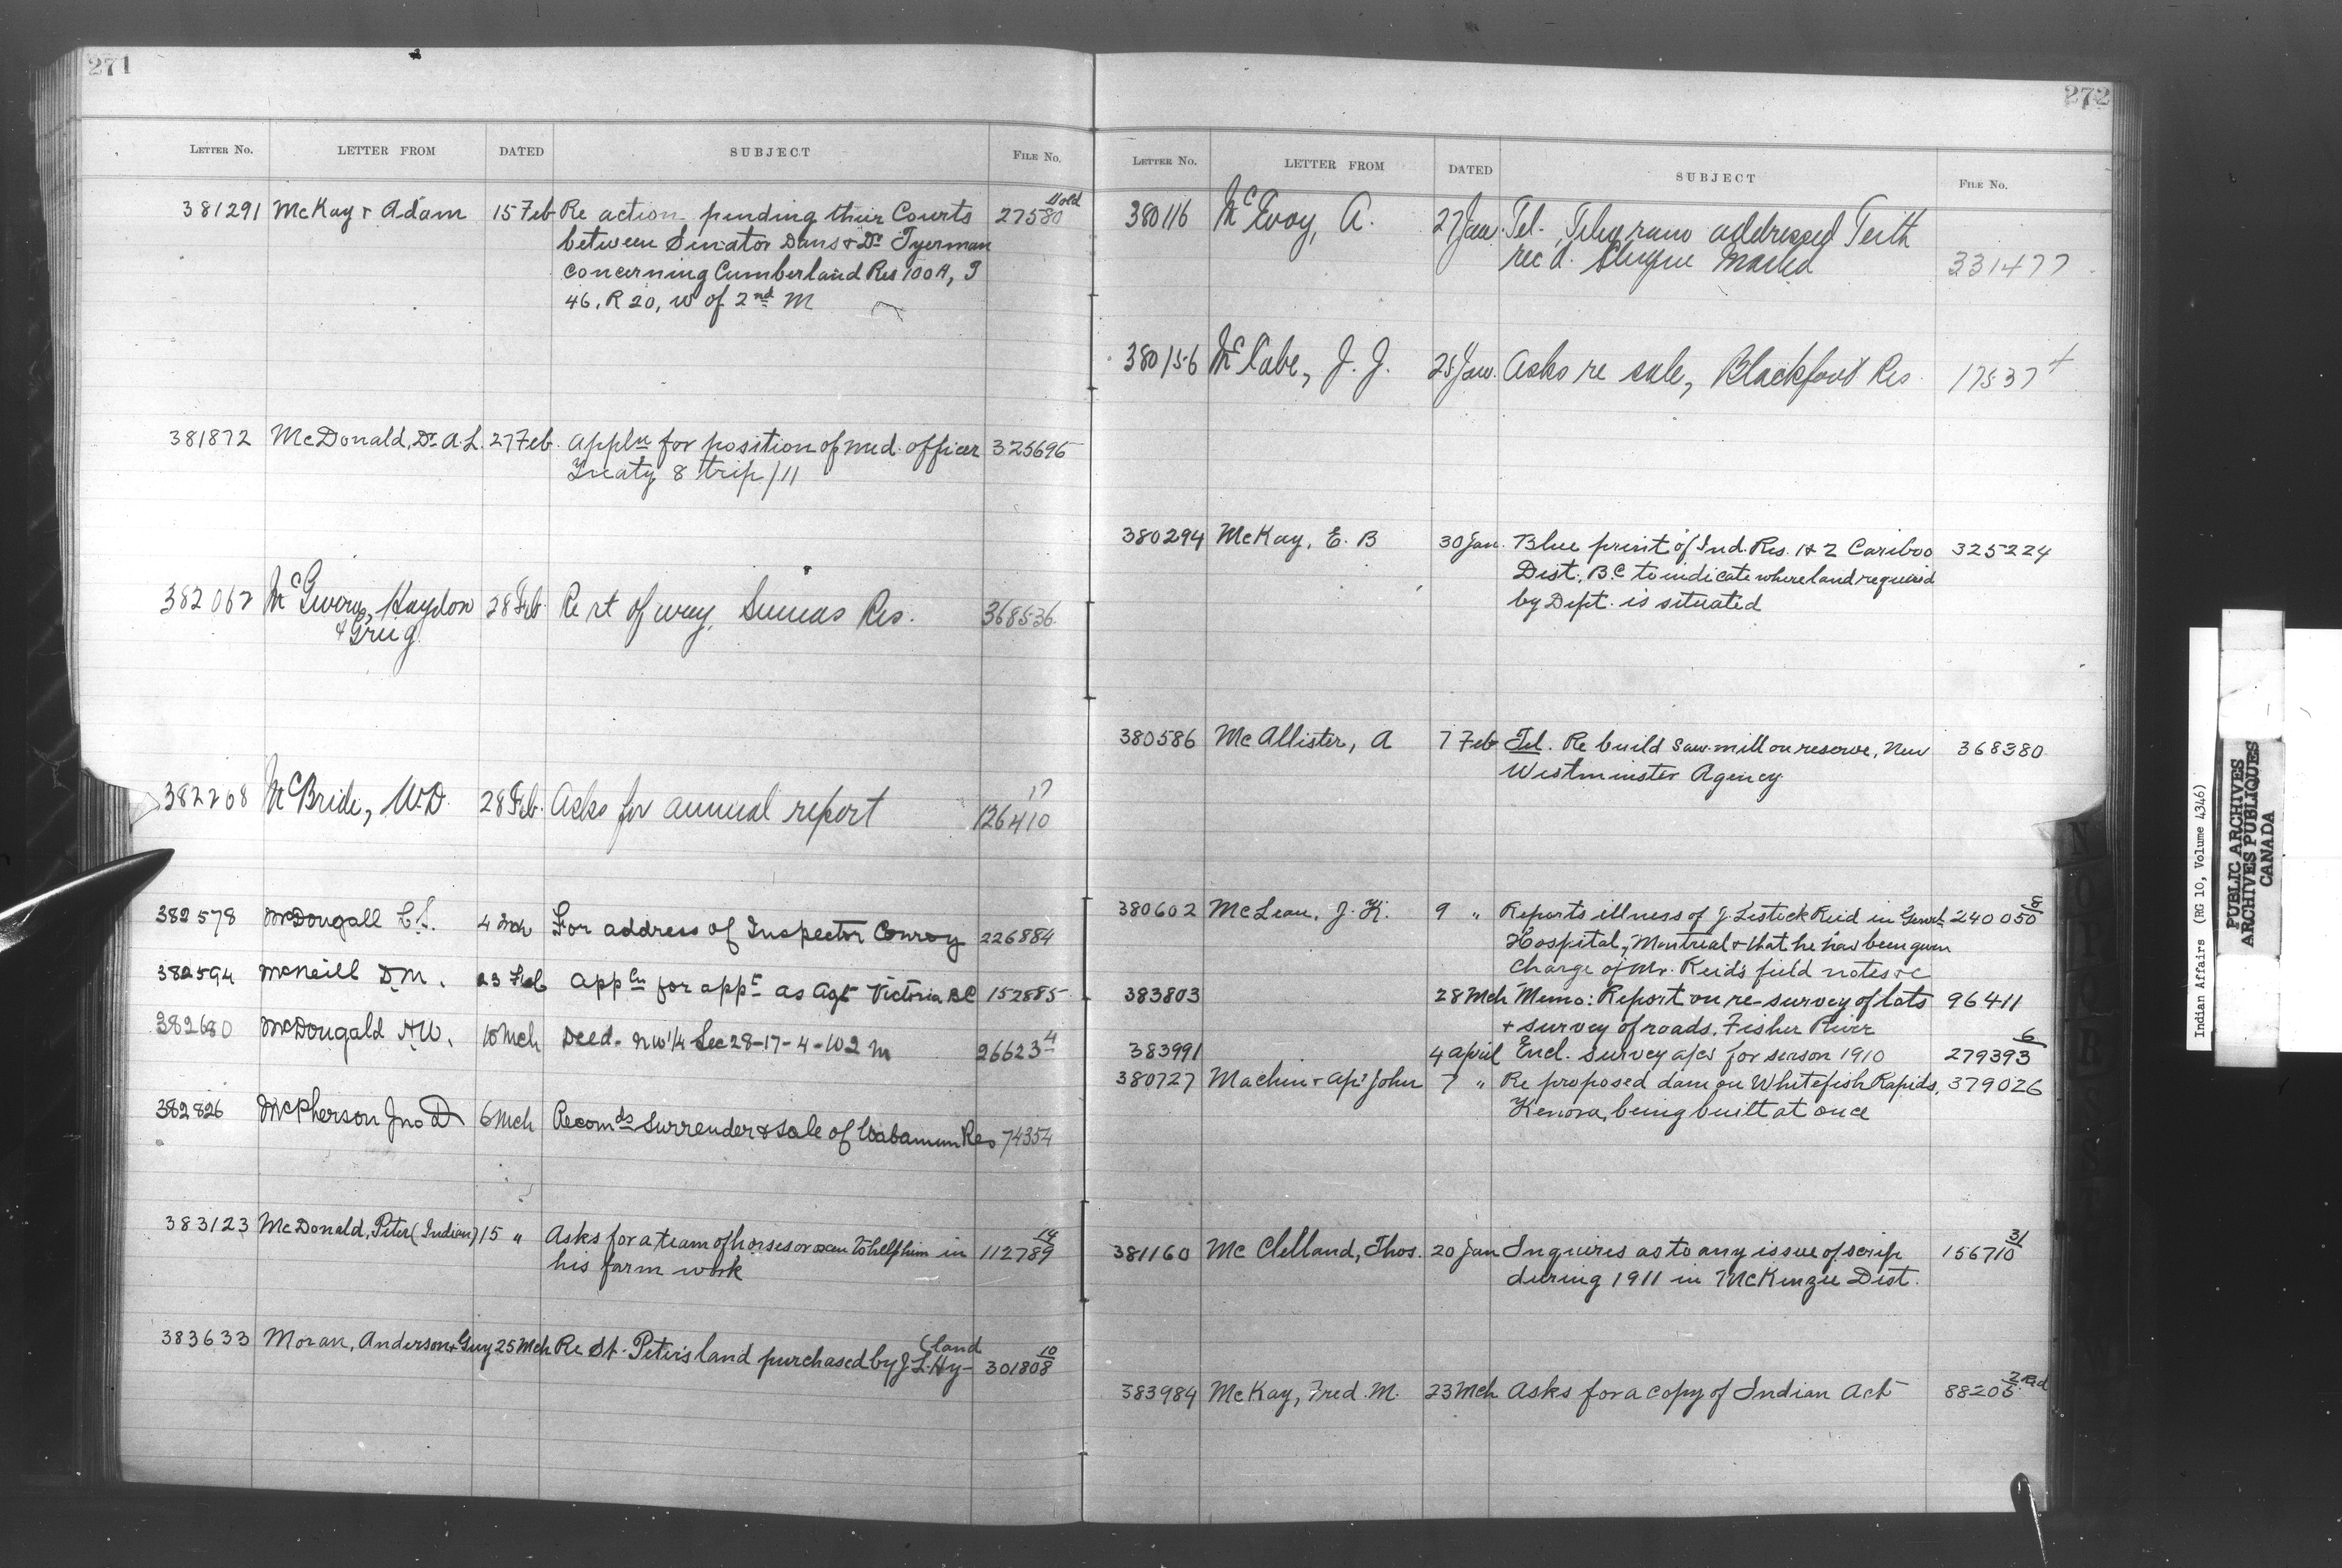 271
LETTER No. LETTER FROM DATED SUBJECT FILE No.
381291 McKay & Adam 15 Feb Re action pending their Courts 27580 Hold
between Senator Davis & Dr Tyerman
concerning Cumberland Res 100A, T
46, R 20, W of 2nd M
381872 McDonald, Dr A.L. 27 Feb. Appln for position of med. officer 325696
Treaty 8 trip /11
382062 McGivern, Haydon 28 Feb. Re rt of way, Sumas Res. 368536
& Greig
382208 McBride, W.D. 28 Feb. Asks for annual report 126410 17
382578 McDougall C.S. 4 Mch For address of Inspector Conroy 226884
382594 McNeill D.M. 23 Feb Appln for appt as Agt Victoria BC 152885
382680 McDougald H.W. 10 Mch Deed - NW 1/4 Sec 28-17-4-W2M 26623 4
382826 McPherson Jno D 6 Mch Recomds surrender & sale of Wabamun Res 74354
383123 McDonald, Peter (Indian) 15 " Asks for a team of horses or oxen to help him in 112789 14
his farm work
383633 Moran, Anderson & Guy 25 Mch Re St. Peter's land purchased by J.L. Hy- 301808 10
(land
272
LETTER No. LETTER FROM DATED SUBJECT FILE No.
380116 McEvoy, A. 27 Jan. Tel. Telegram addressed
rec'd. Cheque mailed 331477
380156 McCabe, J. J. 25 Jan. Asks re sale, Blackfoot Res. 17537 +
380294 McKay, E. B 30 Jan. Blue print of Ind. Res. 1 & 2 Cariboo 325224
Dist., B.C to indicate where land required
by Dept. is situated
380586 McAllister, A 7 Feb Tel. Re build saw-mill on reserve, New 368380
Westminster Agency
380602 McLean, J. K. 9 " Reports illness of J. Lestock Reid in Genrl. 240050 8
Hospital, Montreal & that he has been given
charge of Mr. Reid's field notes &c
383803 28 Mch Memo: Report on re-survey of lots 96411
& survey of roads. Fisher River
383991 4 April Encl. survey a/cs for season 1910 279393 6
380727 Machin & John 7 " Re proposed dam on Whitefish Rapids, 379026
Kenora, being built at once
381160 McClelland, Thos. 20 Jan Inquires as to any issue of scrip 156710 31
during 1911 in McKenzie Dist.
383984 McKay, Fred. M. 23 Mch Asks for a copy of Indian Act 88205
Indian Affairs (RG 10, Volume 4346)
PUBLIC ARCHIVES
ARCHIVES PUBLIQUES
CANADA